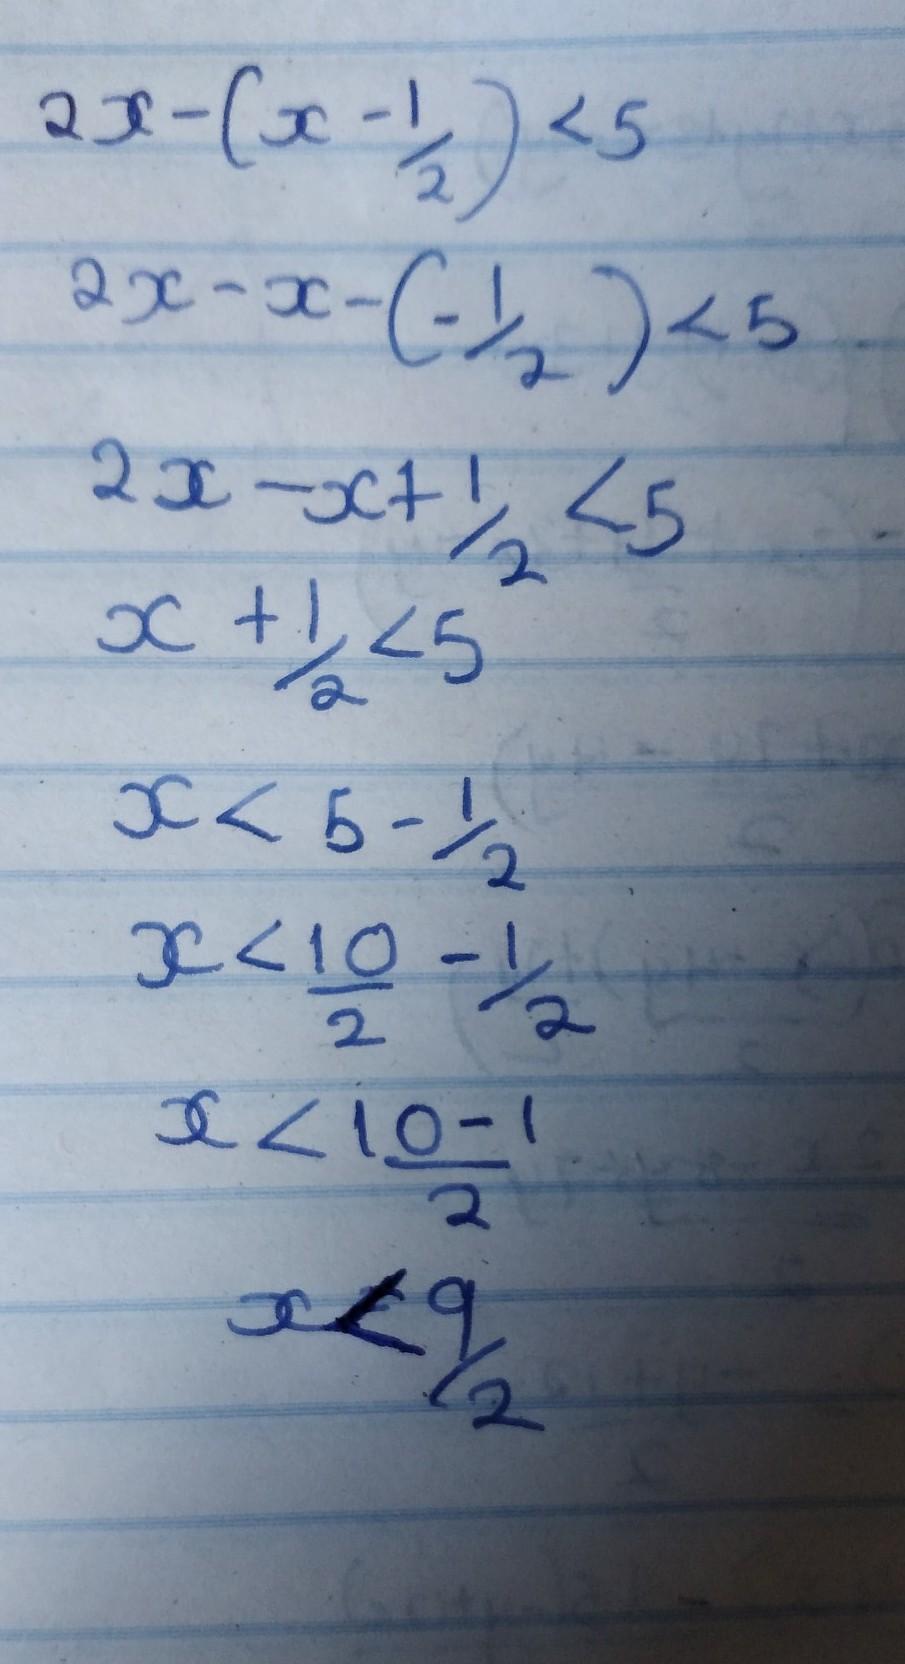 2x-(x-1/2)<5
2x-x-(-1/2)<5
2x-x+1/2<5
x+1/2<5
x<5-1/2
x<10/2-1/2
x<10-1/2
x<9/2